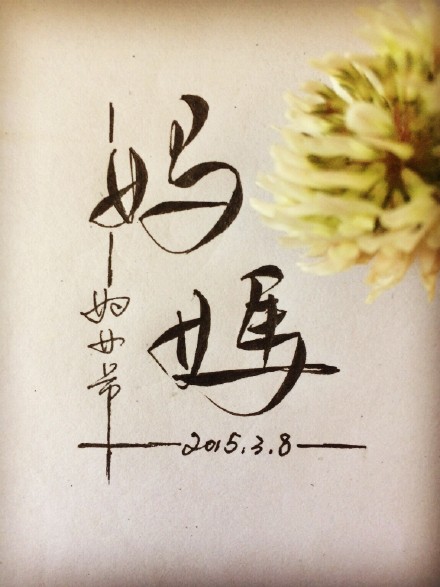 妈
媽
妇女节
2015.3.8